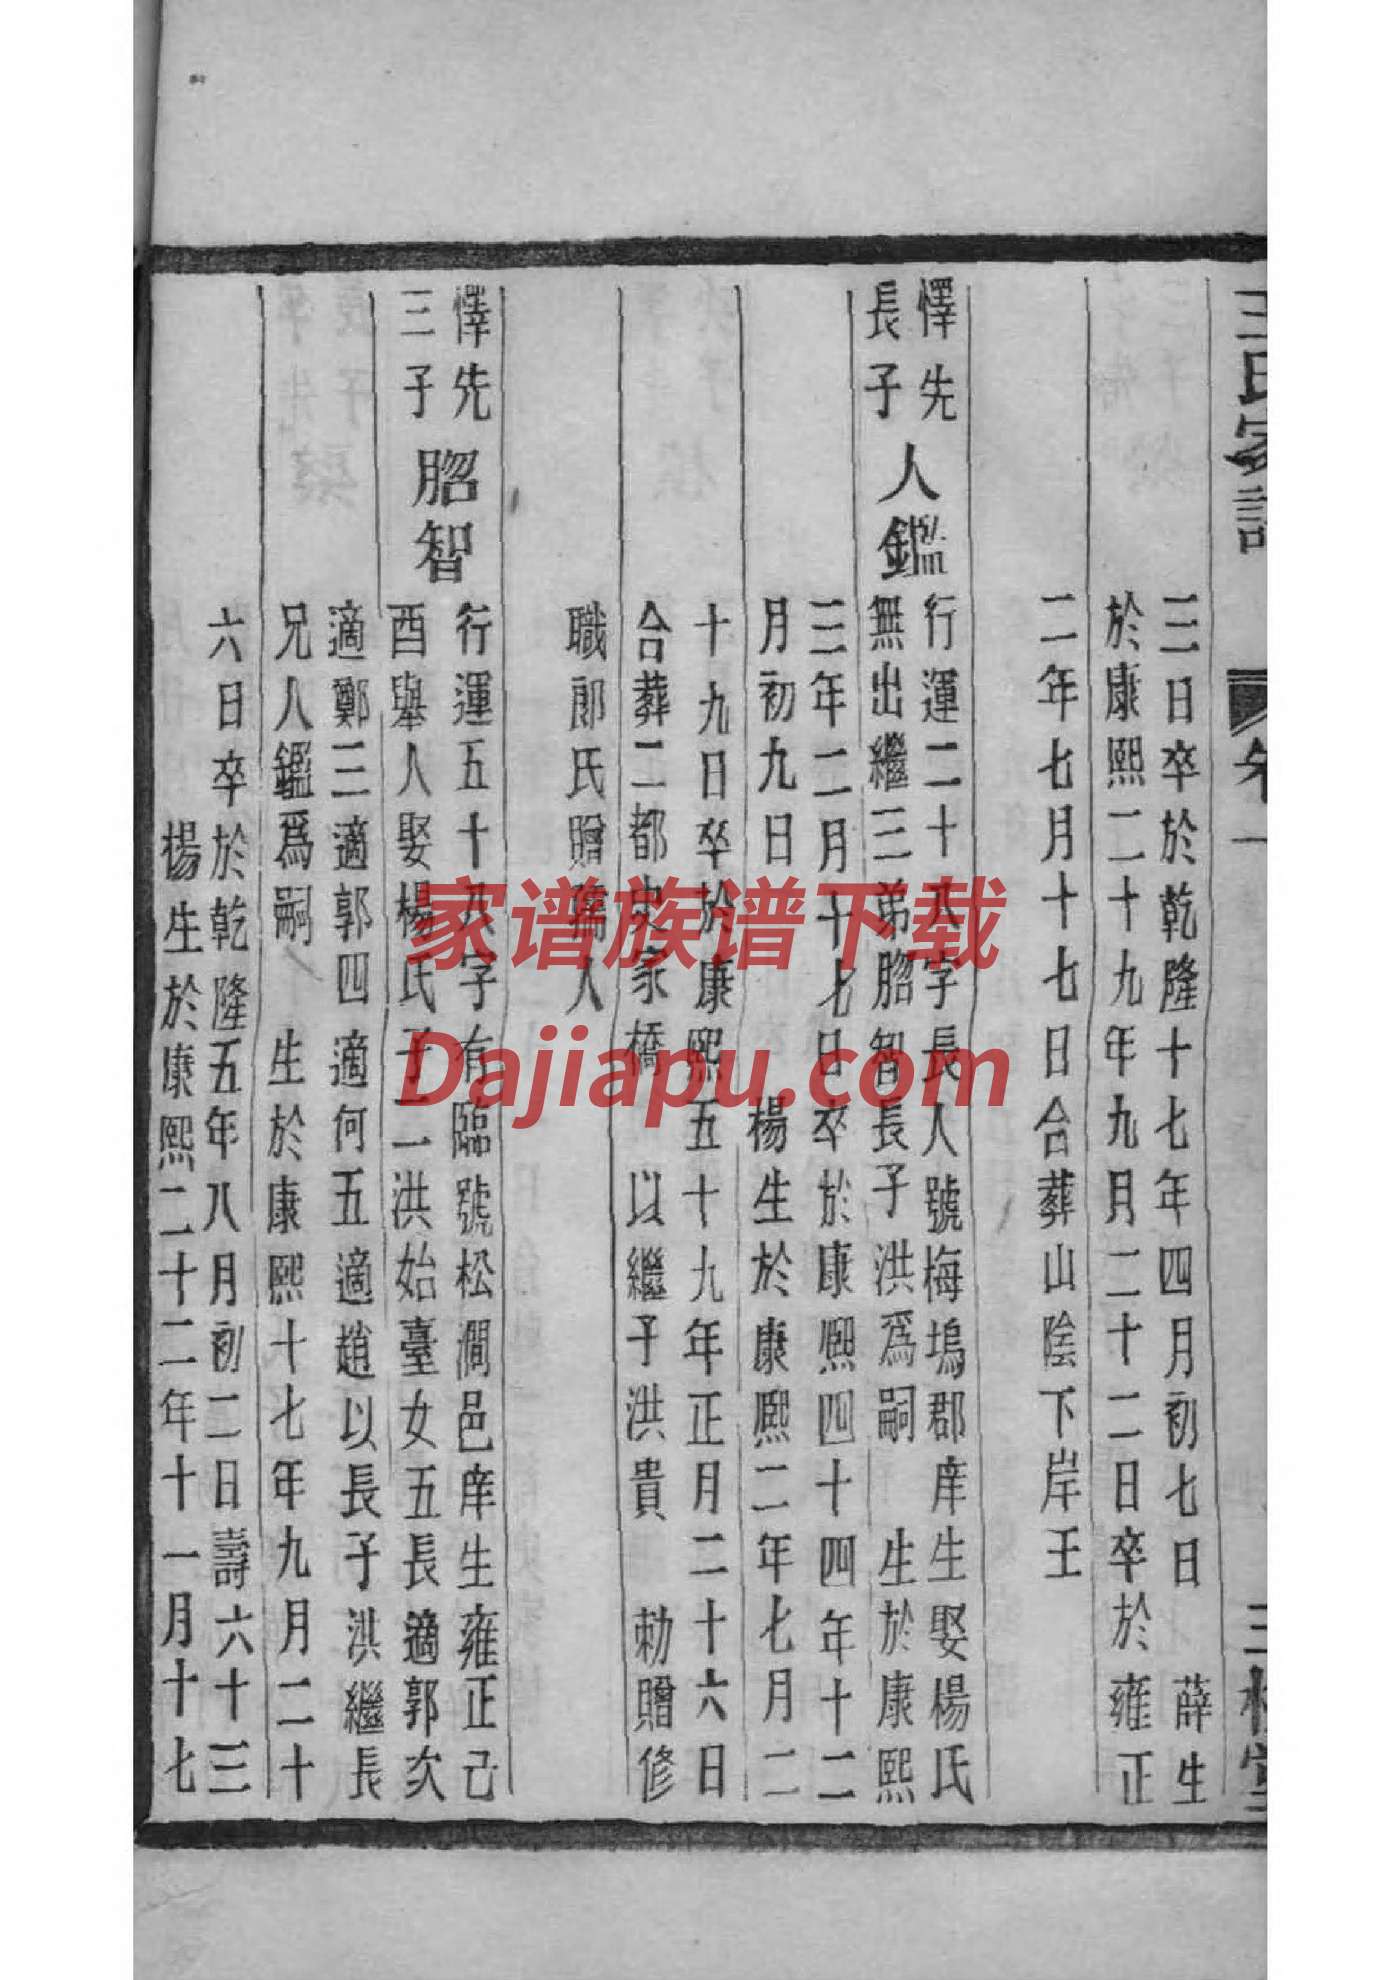 王氏家譜 卷一 三槐堂
三日卒於乾隆十七年四月初七日 薛生
於康熙二十九年九月二十二日卒於雍正
二年七月十七日合葬山陰下岸王
懌先
長子
人鑑
行運二十八字長人號梅塢郡庠生娶楊氏
無出繼三弟䏮智長子洪爲嗣 生於康熙
三年二月十七日卒於康熙四十四年十二
月初九日 楊生於康熙二年七月二
十九日卒於康熙五十九年正月二十六日
合葬二都史家橋 以繼子洪貴 勅贈修
職郎氏贈孺人
懌先
三子
䏮智
行運五十八字有臨號松澗邑庠生雍正己
酉舉人娶楊氏子一洪始臺女五長適郭次
適鄭三適郭四適何五適趙以長子洪繼長
兄人鑑爲嗣 生於康熙十七年九月二十
六日卒於乾隆五年八月初二日壽六十三
楊生於康熙二十二年十一月十七
家谱族谱下载
Dajiapu.com